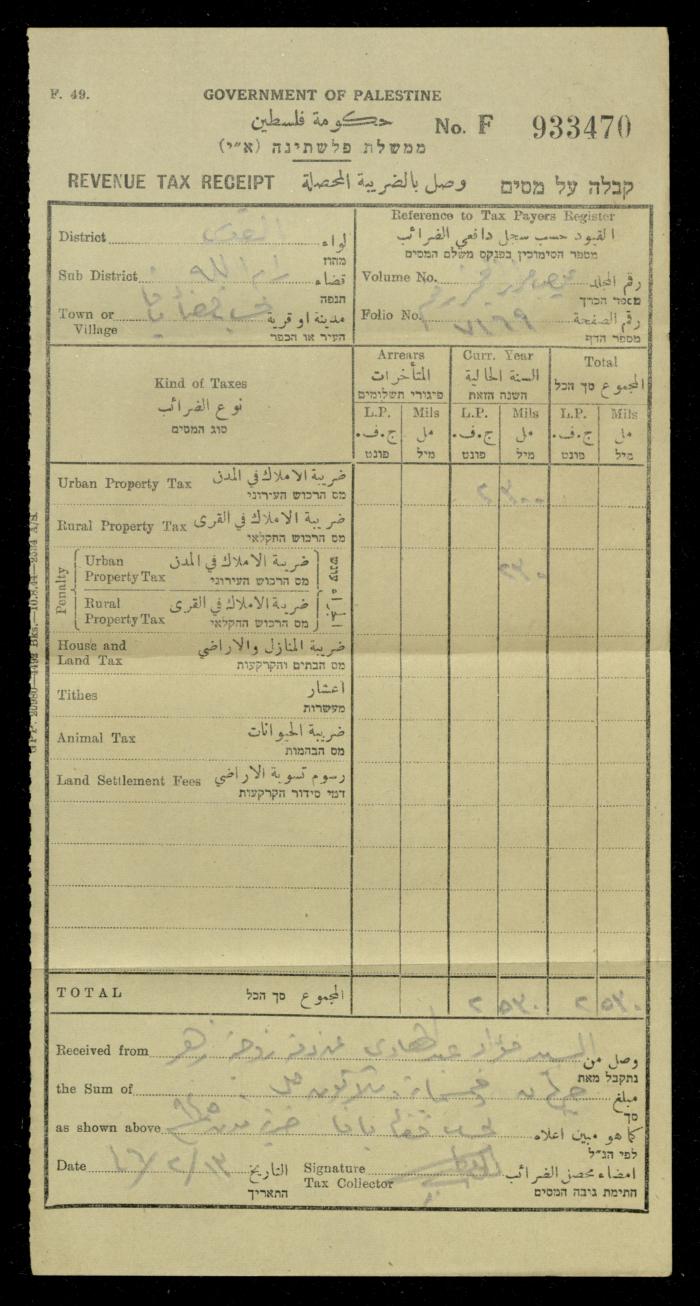 F. 49.
GOVERNMENT OF PALESTINE
حكومة فلسطين
No. F 933470
ממשלת פלשתינה (א״י)
REVENUE TAX RECEIPT وصل بالضريبة المحصلة קבלה על מסים
District القدس لواء
מחוז
Sub District رام الله قضاء
הנפה
Town or Village مدينة او قرية
העיר או הכפר
Reference to Tax Payers Register
القيود حسب سجل دافعي الضرائب
מספר הסימוכין בפנקס משלם המסים
Volume No. رقم المجلد
מספר הכרך
Folio No. رقم الصفحة
מספר הדף
Kind of Taxes
نوع الضرائب
סוג המסים
Arrears Curr. Year Total
المتأخرات السنة الحالية المجموع סך הכל
פיגורי תשלומים השנה הזאת
L.P. Mils L.P. Mils L.P. Mils
ج.ف. مل ج.ف. مل ج.ف. مل
פונט מיל פונט מיל פונט מיל
Urban Property Tax ضريبة الاملاك في المدن ٢ ٣٠٠
מס הרכוש העירוני
Rural Property Tax ضريبة الاملاك في القرى
מס הרכוש החקלאי
Penalty
Urban Property Tax ضريبة الاملاك في المدن ٢٣٠
מס הרכוש העירוני
Rural Property Tax ضريبة الاملاك في القرى
מס הרכוש החקלאי
עונש
House and Land Tax ضريبة المنازل والاراضي
מס הבתים והקרקעות
Tithes اعشار
מעשרות
Animal Tax ضريبة الحيوانات
מס הבהמות
Land Settlement Fees رسوم تسوية الاراضي
דמי סידור הקרקעות
TOTAL المجموع סך הכל ٢ ٥٣٠ ٢ ٥٣٠
Received from السيد فؤاد عبد الهادي وصل من
נתקבל מאת
the Sum of وخمسماية وثلاثون مل مبلغ
סך
as shown above كما هو مبين اعلاه
לפי הנ״ל
Date ٤٦/٢/١٣ التاريخ
התאריך
Signature Tax Collector امضاء محصل الضرائب
חתימת גובה המסים